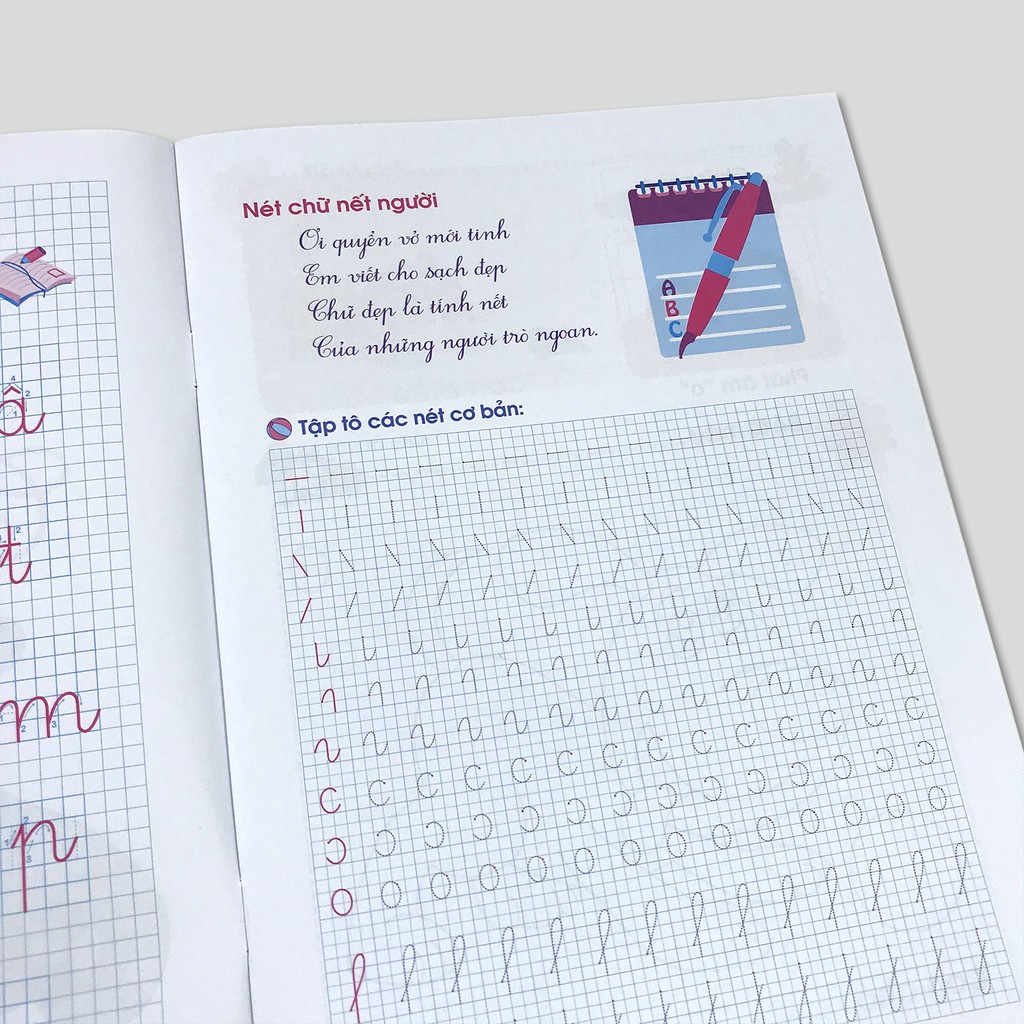 â
t
m
p
Nét chữ nết người
Ơi quyển vở mới tinh
Em viết cho sạch đẹp
Chữ đẹp là tính nết
Của những người trò ngoan.
A
B
C
Tập tô các nét cơ bản: